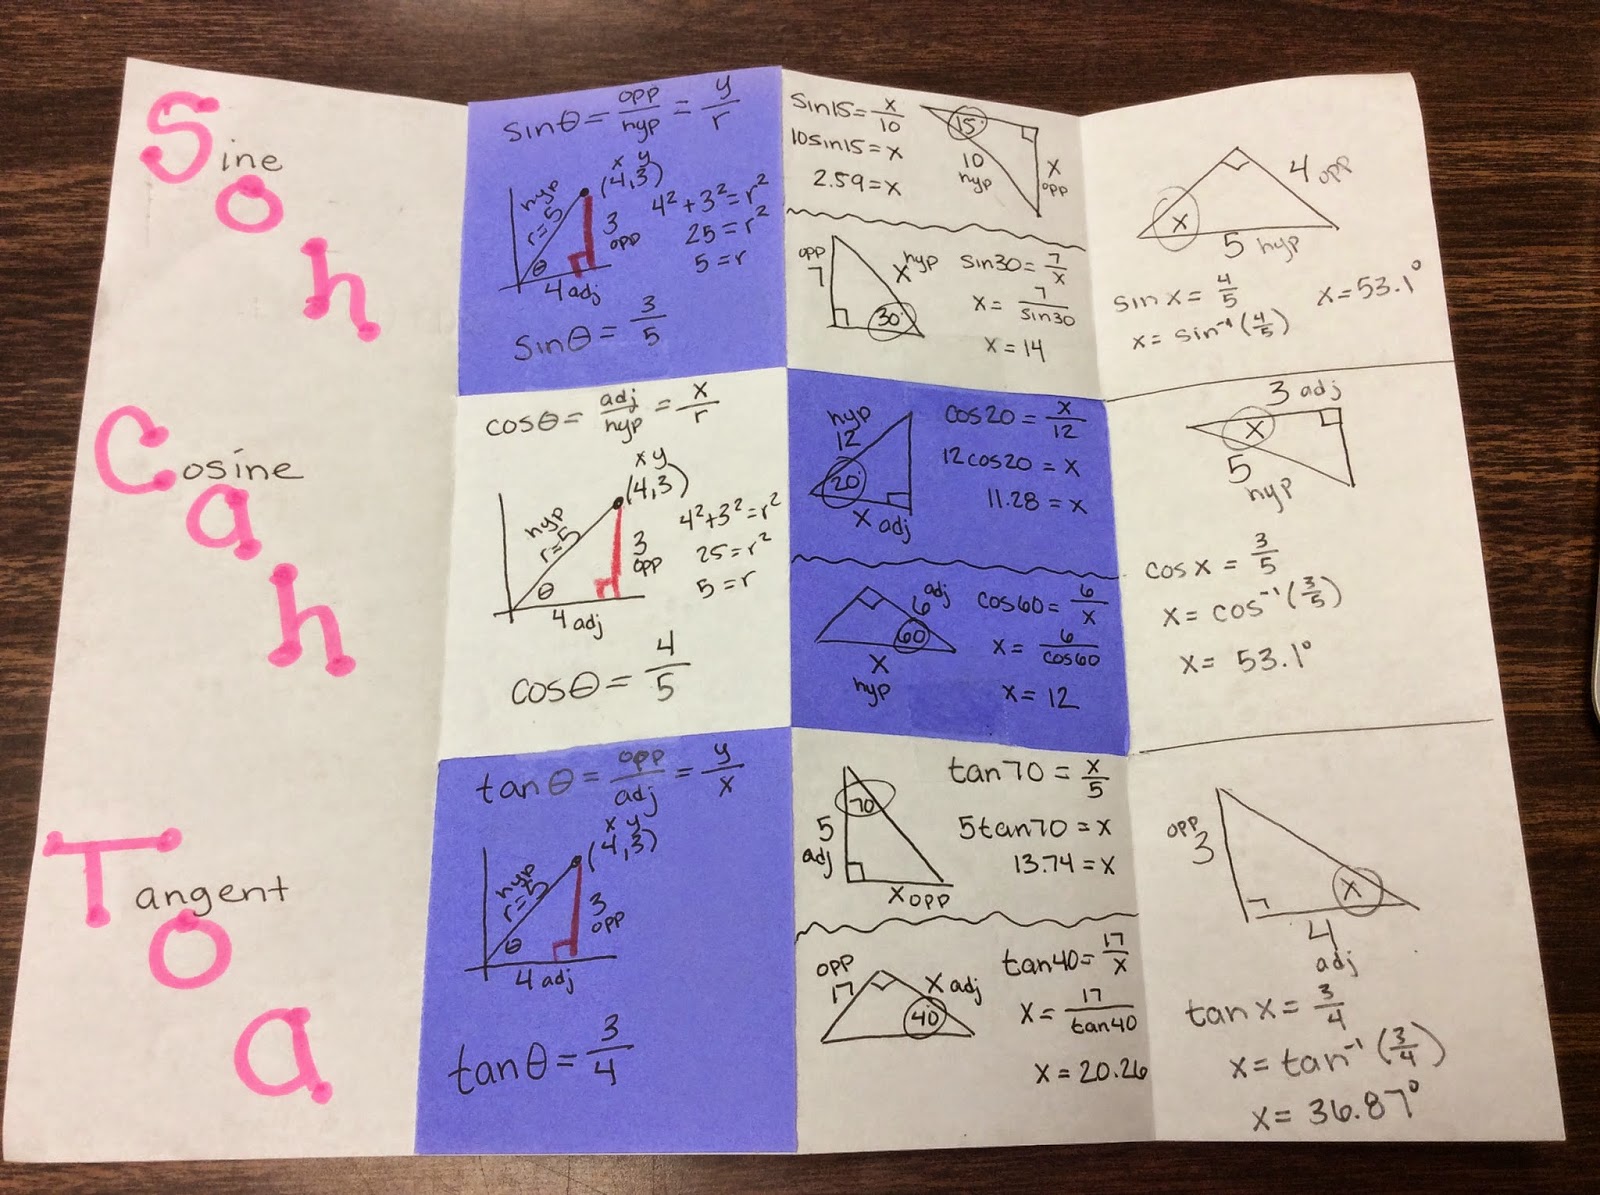 Sine
o
h
sinθ = opp/hyp = y/r
x y
(4,3)
hyp
r=5
3
opp
θ
4 adj
4² + 3² = r²
25 = r²
5 = r
sinθ = 3/5
sin15 = x/10
10sin15 = x
2.59 = x
15°
10
hyp
x
opp
opp
7
hyp
x
30°
sin30 = 7/x
x = 7/sin30
x = 14
4 opp
x
5 hyp
sin x = 4/5
x = sin⁻¹(4/5)
x = 53.1°
Cosine
a
h
cosθ = adj/hyp = x/r
x y
(4,3)
hyp
r=5
3
opp
θ
4 adj
4²+3²=r²
25 = r²
5 = r
cosθ = 4/5
hyp
12
20°
x adj
cos20 = x/12
12cos20 = x
11.28 = x
6 adj
60
x
hyp
cos60 = 6/x
x = 6/cos60
x = 12
3 adj
x
5
hyp
cos x = 3/5
x = cos⁻¹(3/5)
x = 53.1°
Tangent
o
a
tanθ = opp/adj = y/x
x y
(4,3)
hyp
r=5
3
opp
θ
4 adj
tanθ = 3/4
70
5
adj
x opp
tan70 = x/5
5tan70 = x
13.74 = x
opp
17
x adj
40
tan40 = 17/x
x = 17/tan40
x = 20.26
opp
3
x
4
adj
tan x = 3/4
x = tan⁻¹(3/4)
x = 36.87°